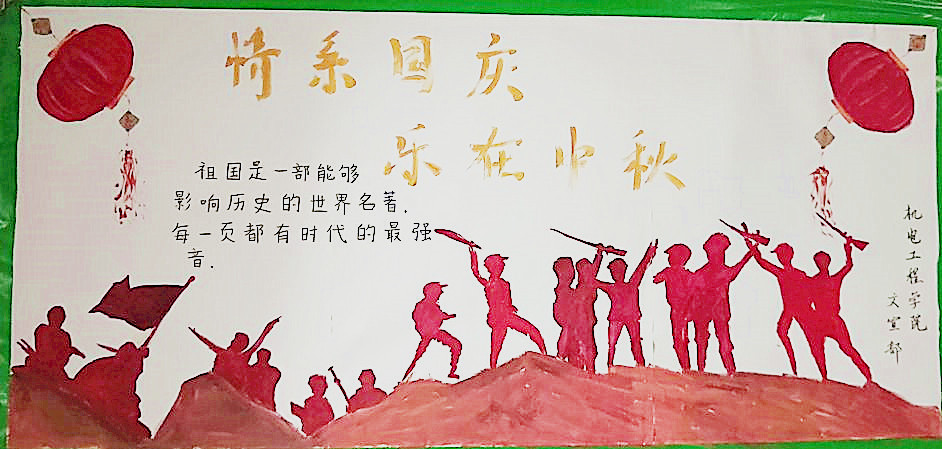 情系国庆
乐在中秋
祖国是一部能够
影响历史的世界名著.
每一页都有时代的最强
音.
机电工程学院
文宣部